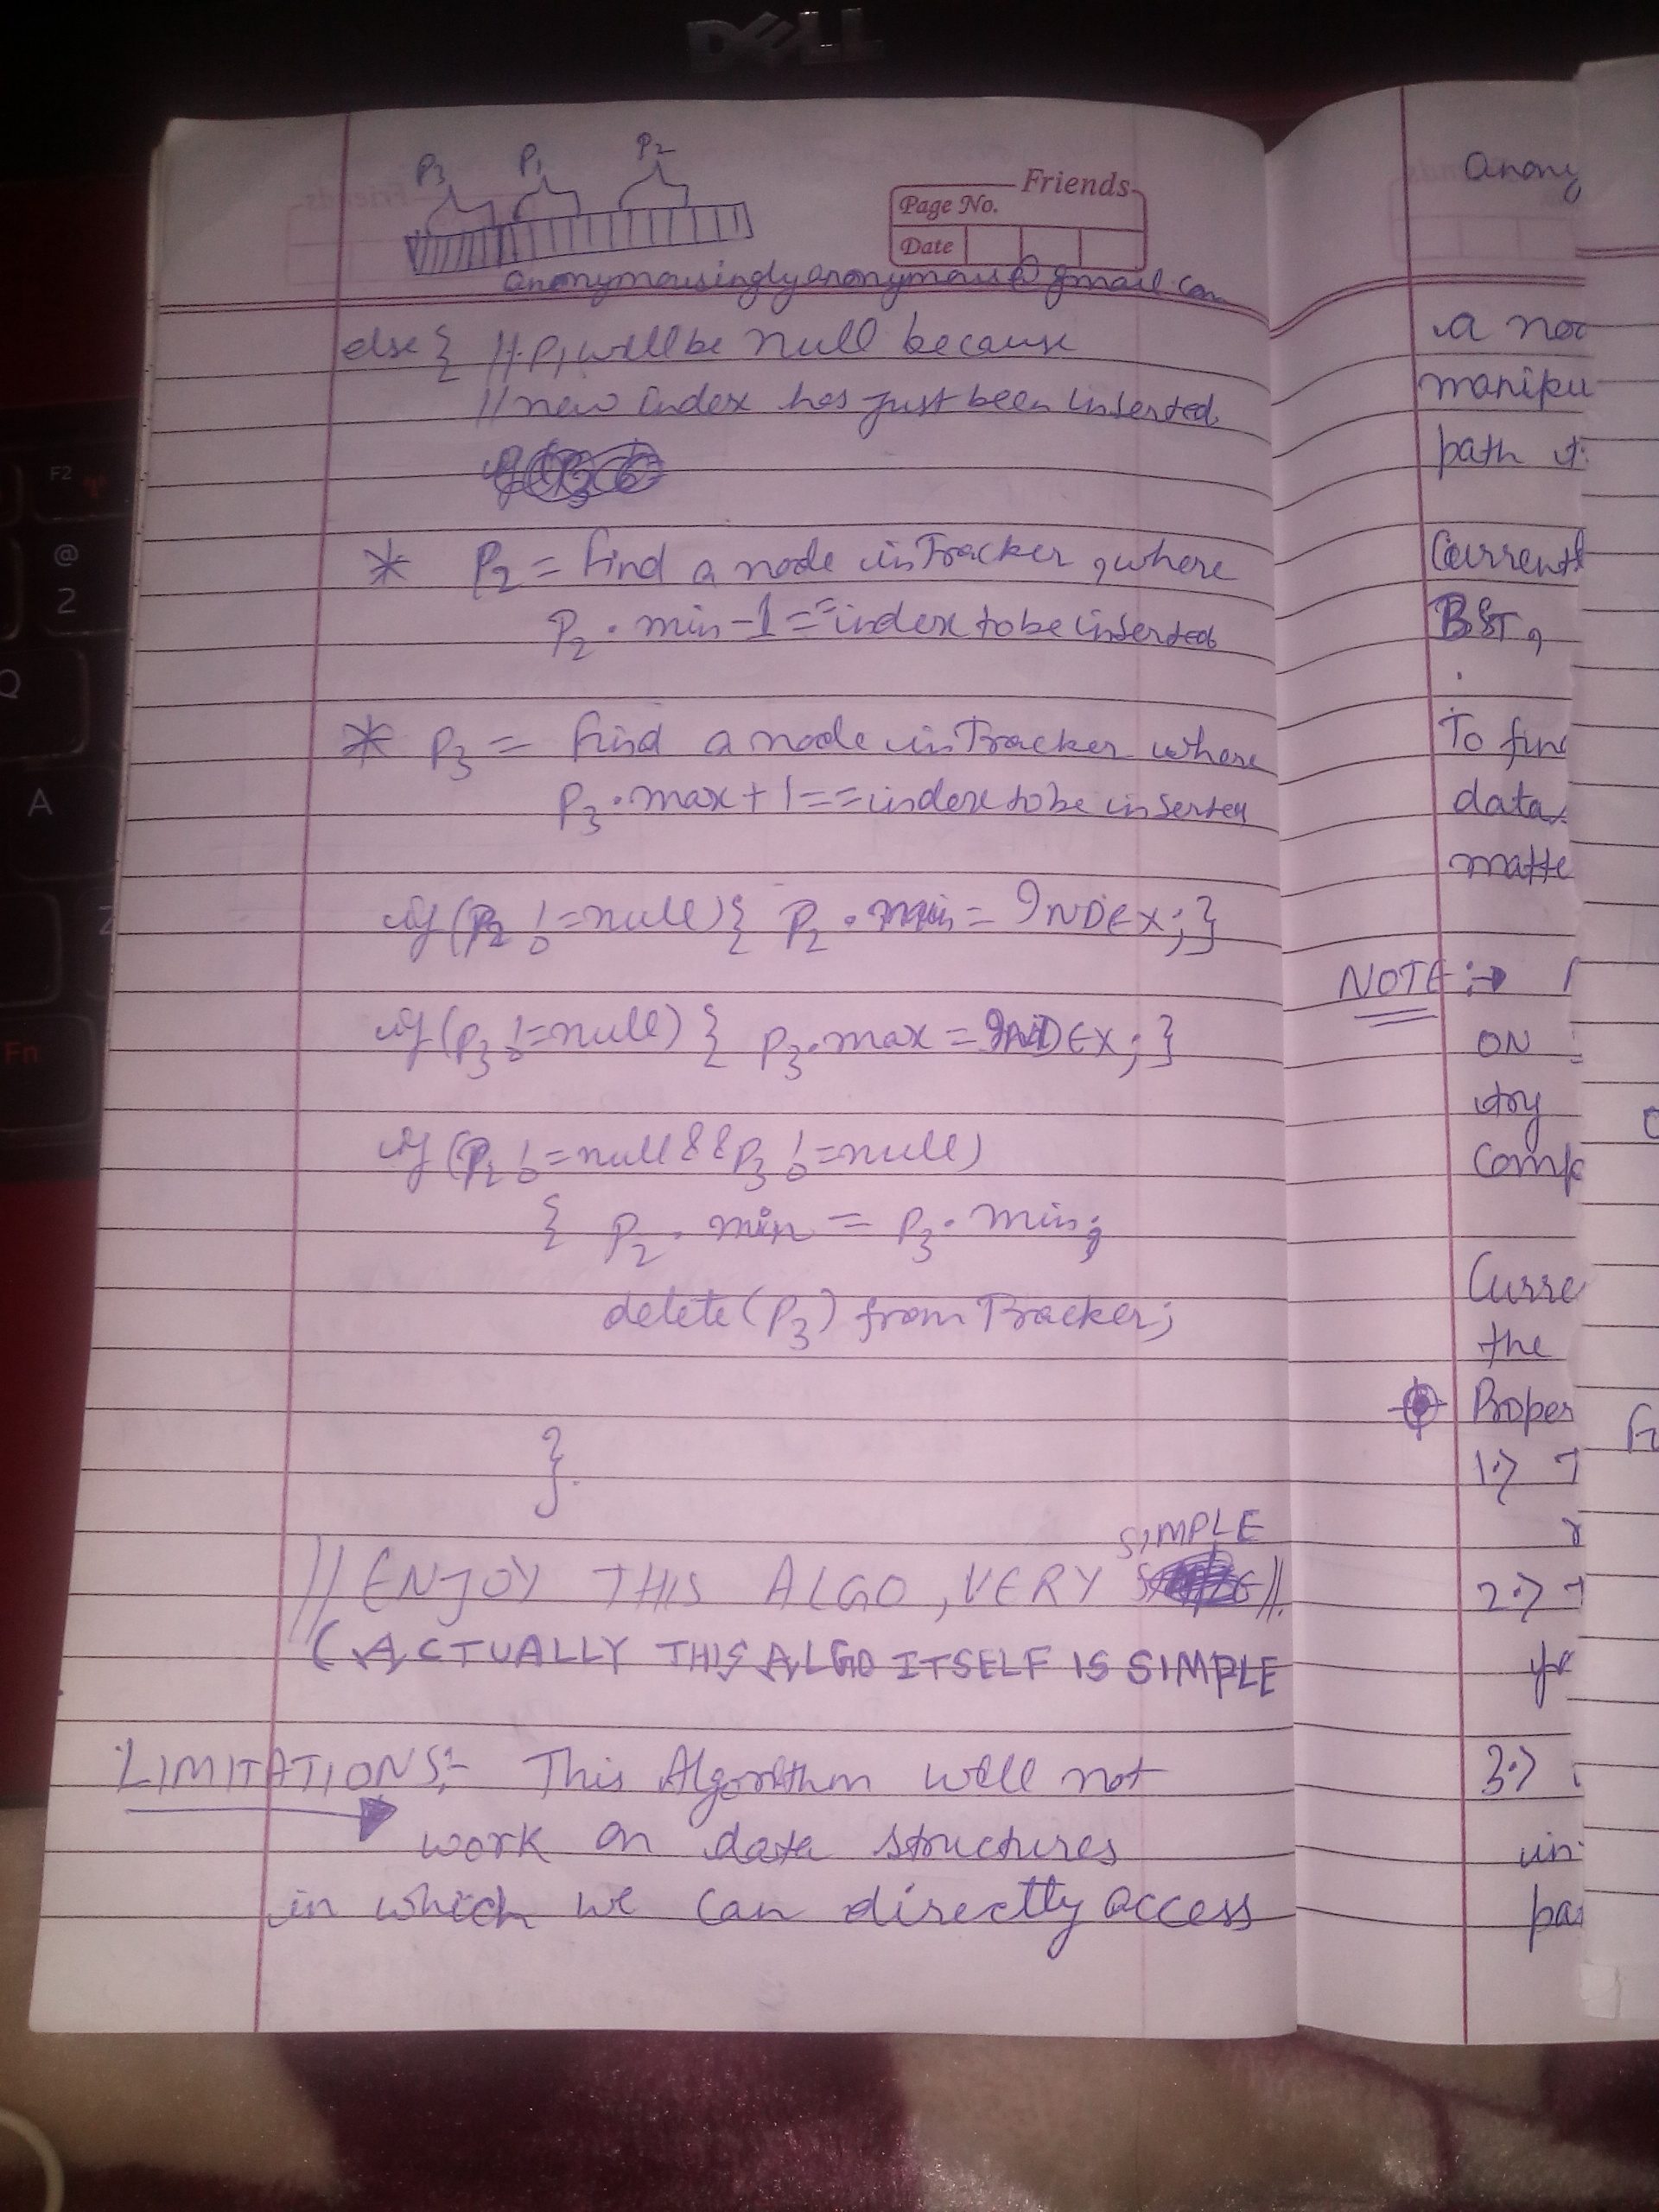 DELL
P3 P1 P2
Friends
Page No.
Date
anonymousinglyanonymous@gmail.com
else { // P1 will be null because
// new index has just been inserted.
* P2 = find a node in Tracker, where
P2.min-1 == index to be inserted
* P3 = find a node in Tracker where
P3.max+1 == index to be inserted
if (P2 != null) { P2.min = INDEX; }
if (P3 != null) { P3.max = INDEX; }
if (P2 != null && P3 != null)
{ P2.min = P3.min;
delete (P3) from Tracker;
}.
SIMPLE
// ENJOY THIS ALGO, VERY //.
(ACTUALLY THIS ALGO ITSELF IS SIMPLE
LIMITATIONS:- This Algorithm will not
work on data structures
in which we can directly access
anony
a noc
manipu
path
Current
BST,
To fin
data
matte
NOTE :→
ON
try
Comp
Curre
the
Proper
1.>
2.>
3.>
in
pa
F2
@
2
Q
A
Z
Fn